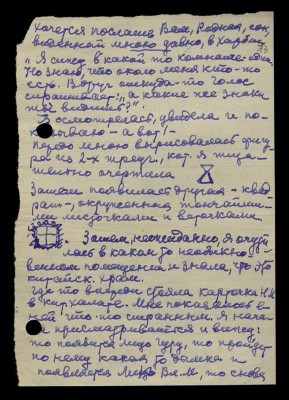 Хочется послать Вам, Родная, сон,
виденный мною давно, в Харбине
"Я сижу в какой то комнате одна,
Но знаю, что около меня кто-то
есть. Вдруг откуда-то голос
спрашивает: "а какие же знаки
ты видишь?"
Я осмотрелась, увидела и по-
казываю - а вот! -
Передо мною вырисовалась фигу-
ра из 2-х треуг., кот. я тща-
тельно очертила
Затем появилась другая - квад-
рат -, окруженная тончайши-
ми листочками и веточками
Затем, неожиданно, я очути-
лась в каком то необыкно-
венном помещении и знала, что это
китайск. храм.
Где то вдали стояла карточка Н.К.
в кир халате. Мне показалось в
ней что-то странным, я нача-
ла присматриваться и вижу:
то появится лицо Гуру, то пройдет
по нему какая то дымка и
появляется Лицо Вл. М., то снова